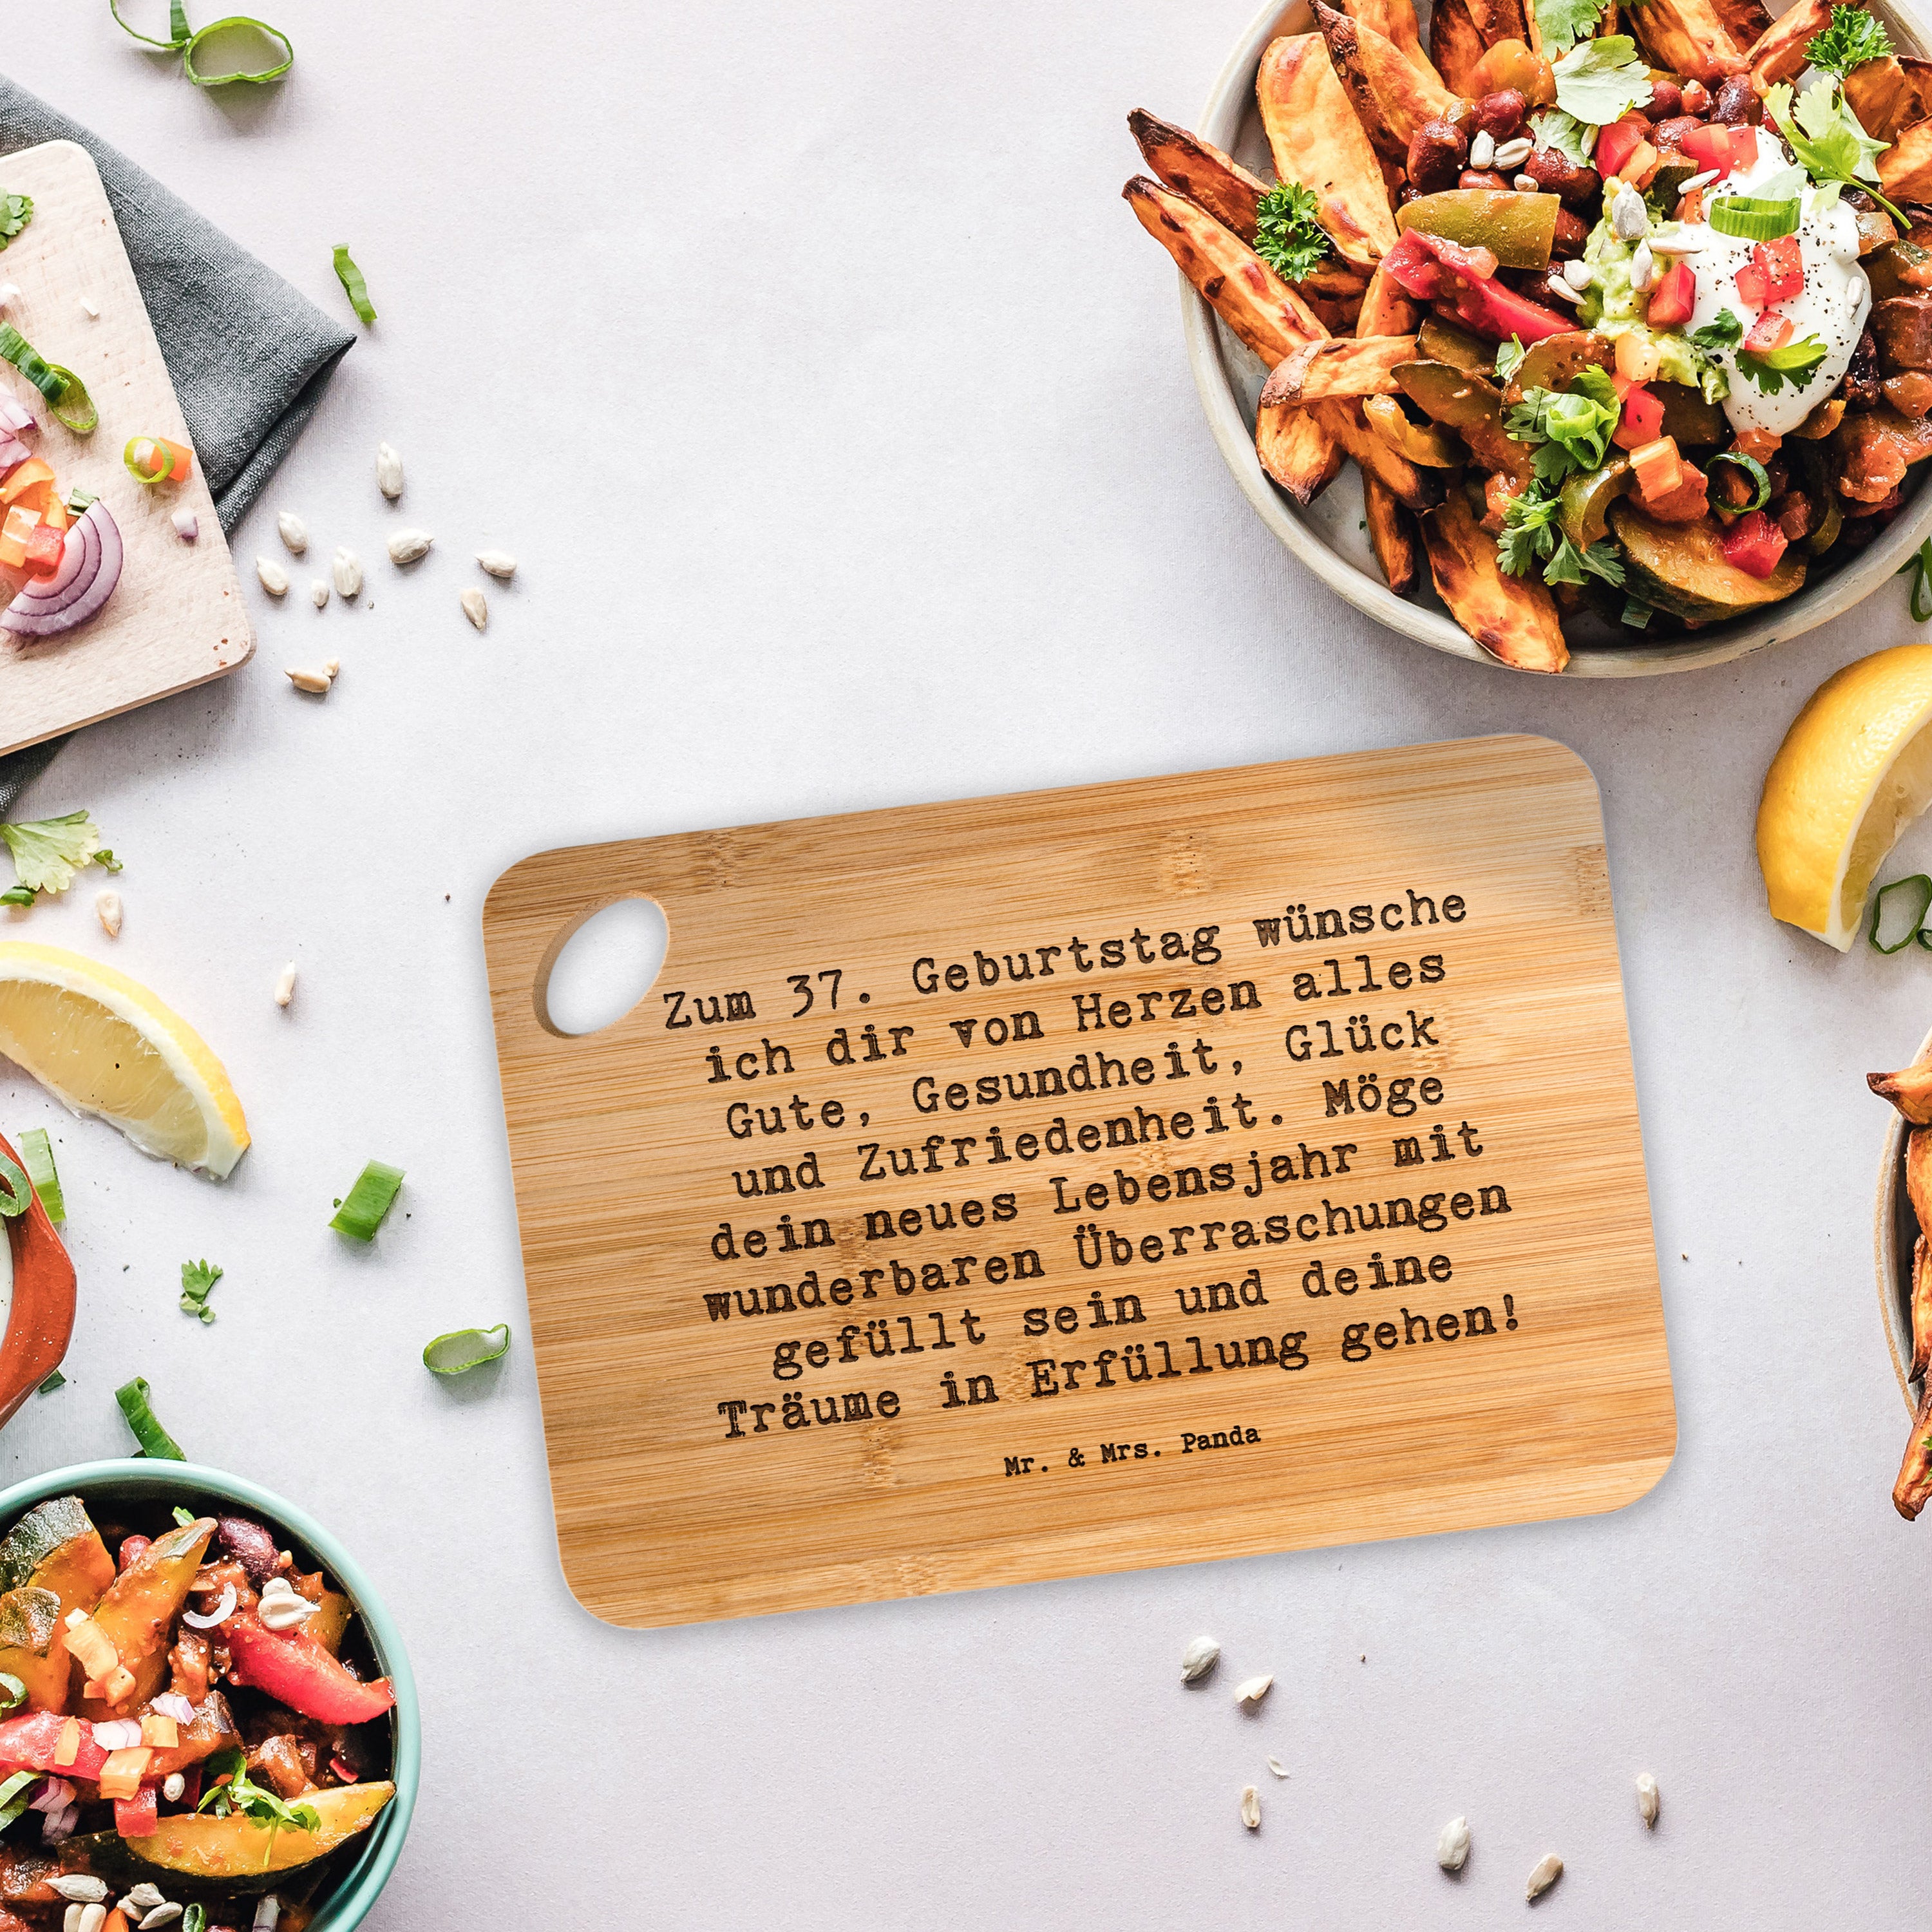 Zum 37. Geburtstag wünsche
ich dir von Herzen alles
Gute, Gesundheit, Glück
und Zufriedenheit. Möge
dein neues Lebensjahr mit
wunderbaren Überraschungen
gefüllt sein und deine
Träume in Erfüllung gehen!
Mr. & Mrs. Panda